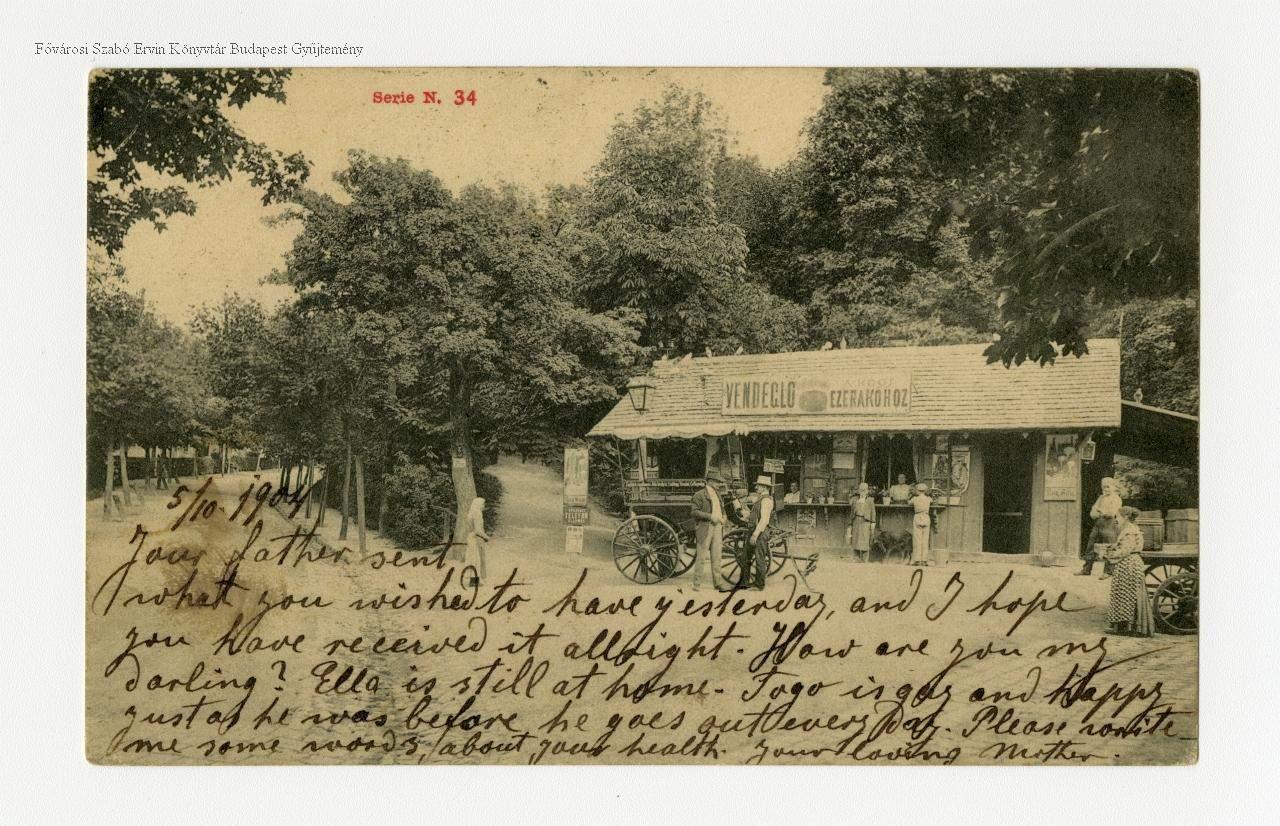 Fővárosi Szabó Ervin Könyvtár Budapest Gyűjtemény
Serie N. 34
VENDEGLŐ
EZERAKÓHOZ
TELEFON
5/10. 1904
Your father sent
what you wished to have yesterday, and I hope
you have received it allright. How are you my
darling? Ella is still at home. Togo is gay and happy
just as he was before, he goes out every day. Please write
me some words, about your health. Your loving Mother.